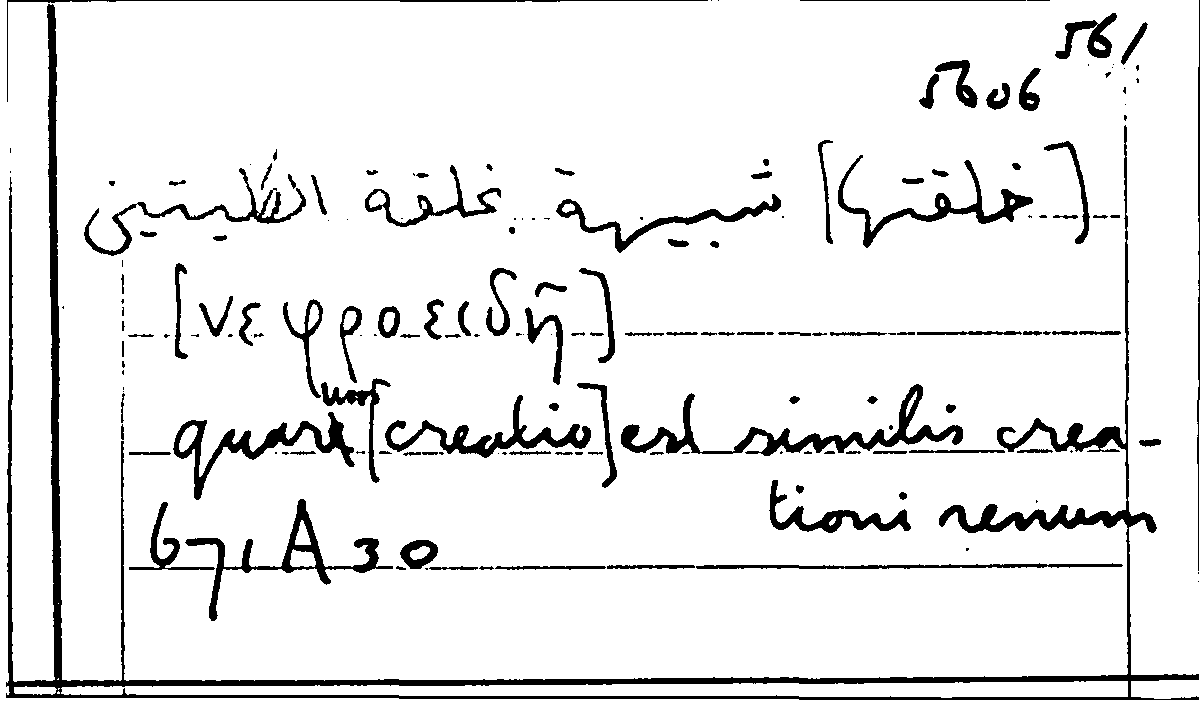 561
5606
[خلقتها] شبيهة بخلقة الكليتين
[νεφροειδῆ]
quarum [creatio] est similis crea-
tioni renum
671A30